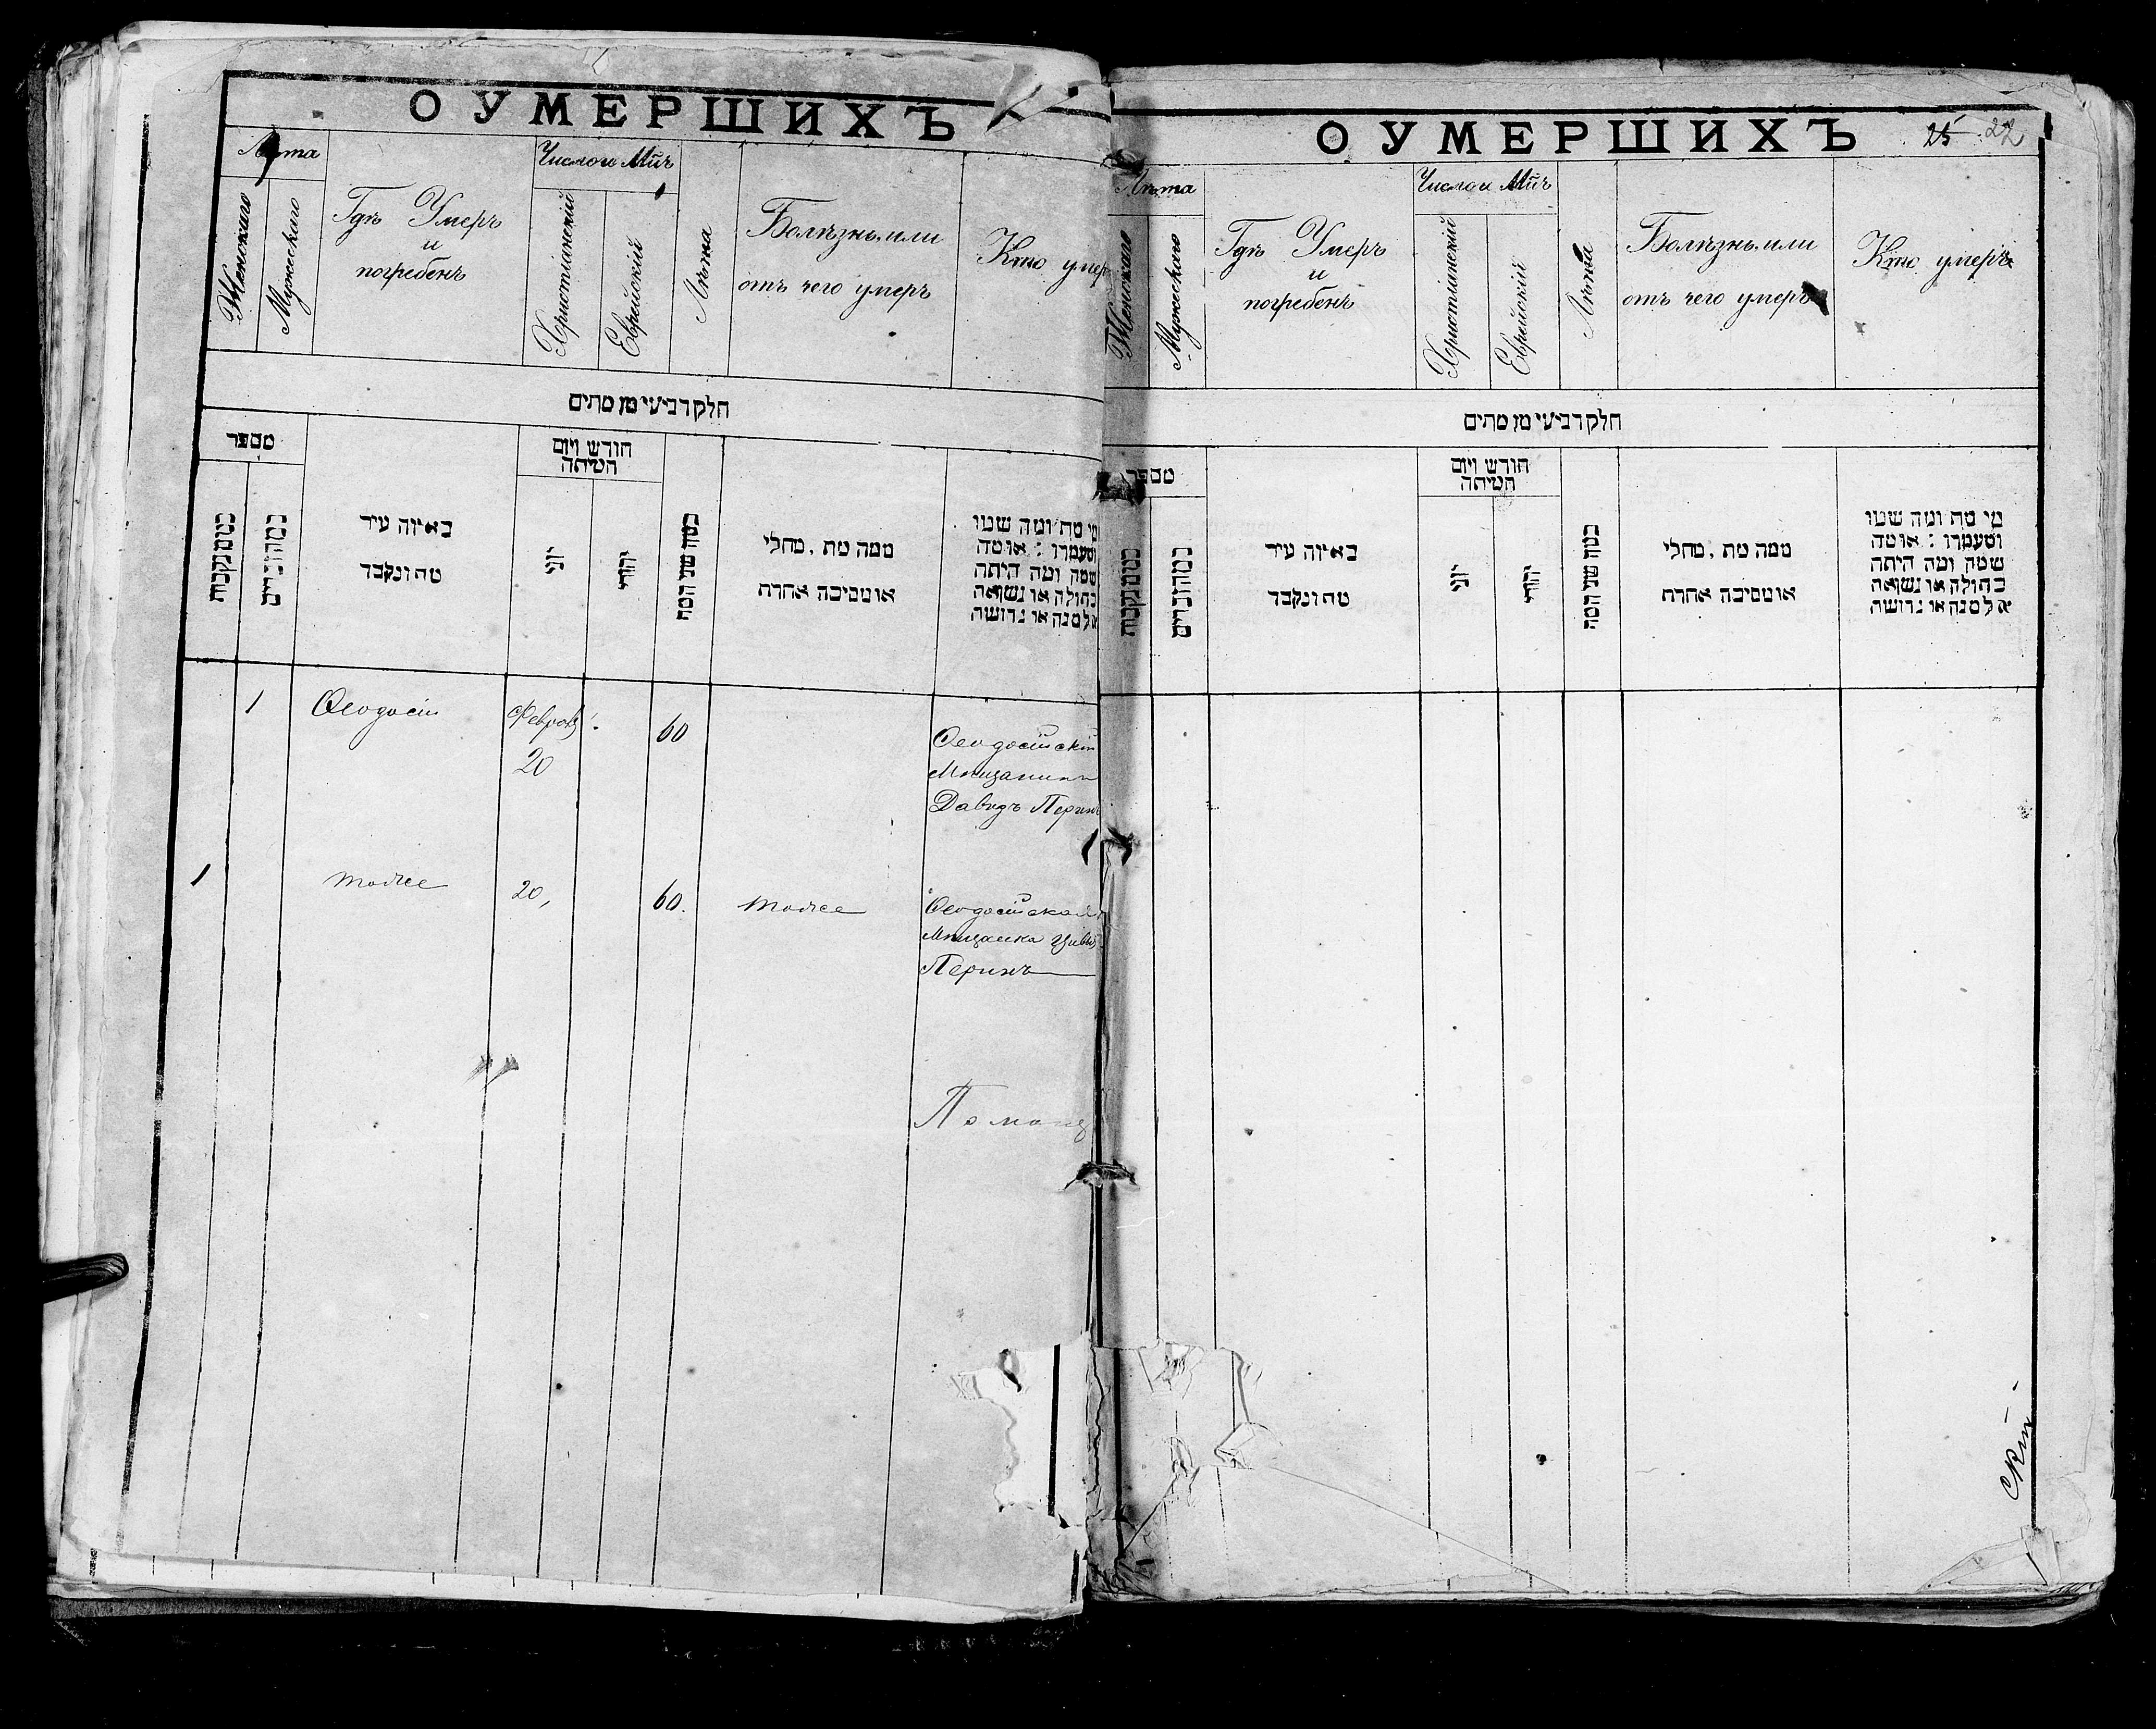 О УМЕРШИХЪ
Лѣта
Женскаго
Мужескаго
Гдѣ Умеръ
и
погребенъ
Число и Мц҃ъ
Христіанскій
Еврейскій
Лѣта
Болѣзнь, или
отъ чего умеръ
Кто умеръ
חלק רביעי מן מתים
מספר
במה נקבות
במה זכרים
באיזה עיר
מת ונקבר
חודש ויום
המיתה
יוני
יהודי
כמה שני המת
ממה מת, מחלי
או מסיבה אחרת
מי מת ומה שמו
ומעמדו : או מה
שמה ומה היתה
בתולה או נשואה
אלמנה או גרושה
1
Ѳеодосіи
Феврал
20
60
Ѳеодосійскій
Мѣщанинъ
Давидъ Перинъ
1
тоже
20,
60.
тоже
Ѳеодосійская
Мѣщанка
Перинъ
О УМЕРШИХЪ
25 22
Лѣта
Женскаго
Мужескаго
Гдѣ Умеръ
и
погребенъ
Число и Мц҃ъ
Христіанскій
Еврейскій
Лѣта
Болѣзнь, или
отъ чего умеръ
Кто умеръ
חלק רביעי מן מתים
מספר
במה נקבות
במה זכרים
באיזה עיר
מת ונקבר
חודש ויום
המיתה
יוני
יהודי
כמה שני המת
ממה מת, מחלי
או מסיבה אחרת
מי מת ומה שמו
ומעמדו : או מה
שמה ומה היתה
בתולה או נשואה
אלמנה או גרושה
скій